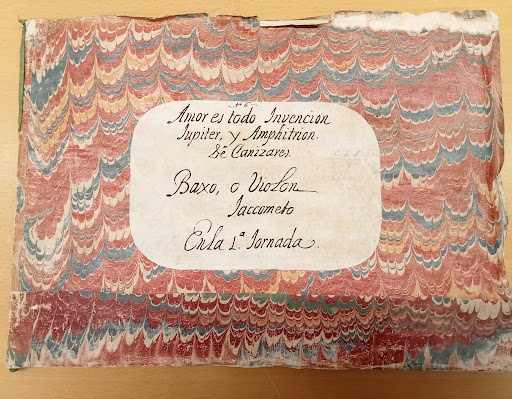 Nº 6
Amor es todo Invencion
Jupiter, y Amphitrion.
De Cañizares.
Baxo, o Violon
Jaccometo
En la 1.ª Jornada.